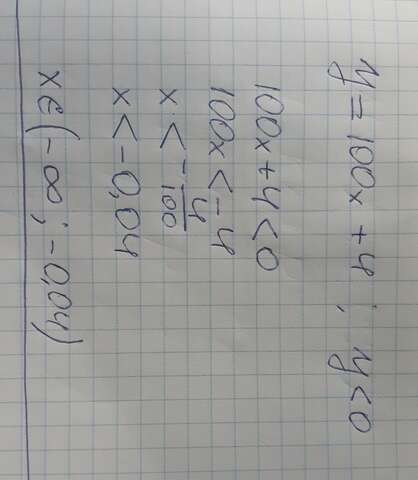 y = 100x + 4 ; y < 0
100x + 4 < 0
100x < -4
x < -4/100
x < -0,04
x ∈ (-∞ ; -0,04)